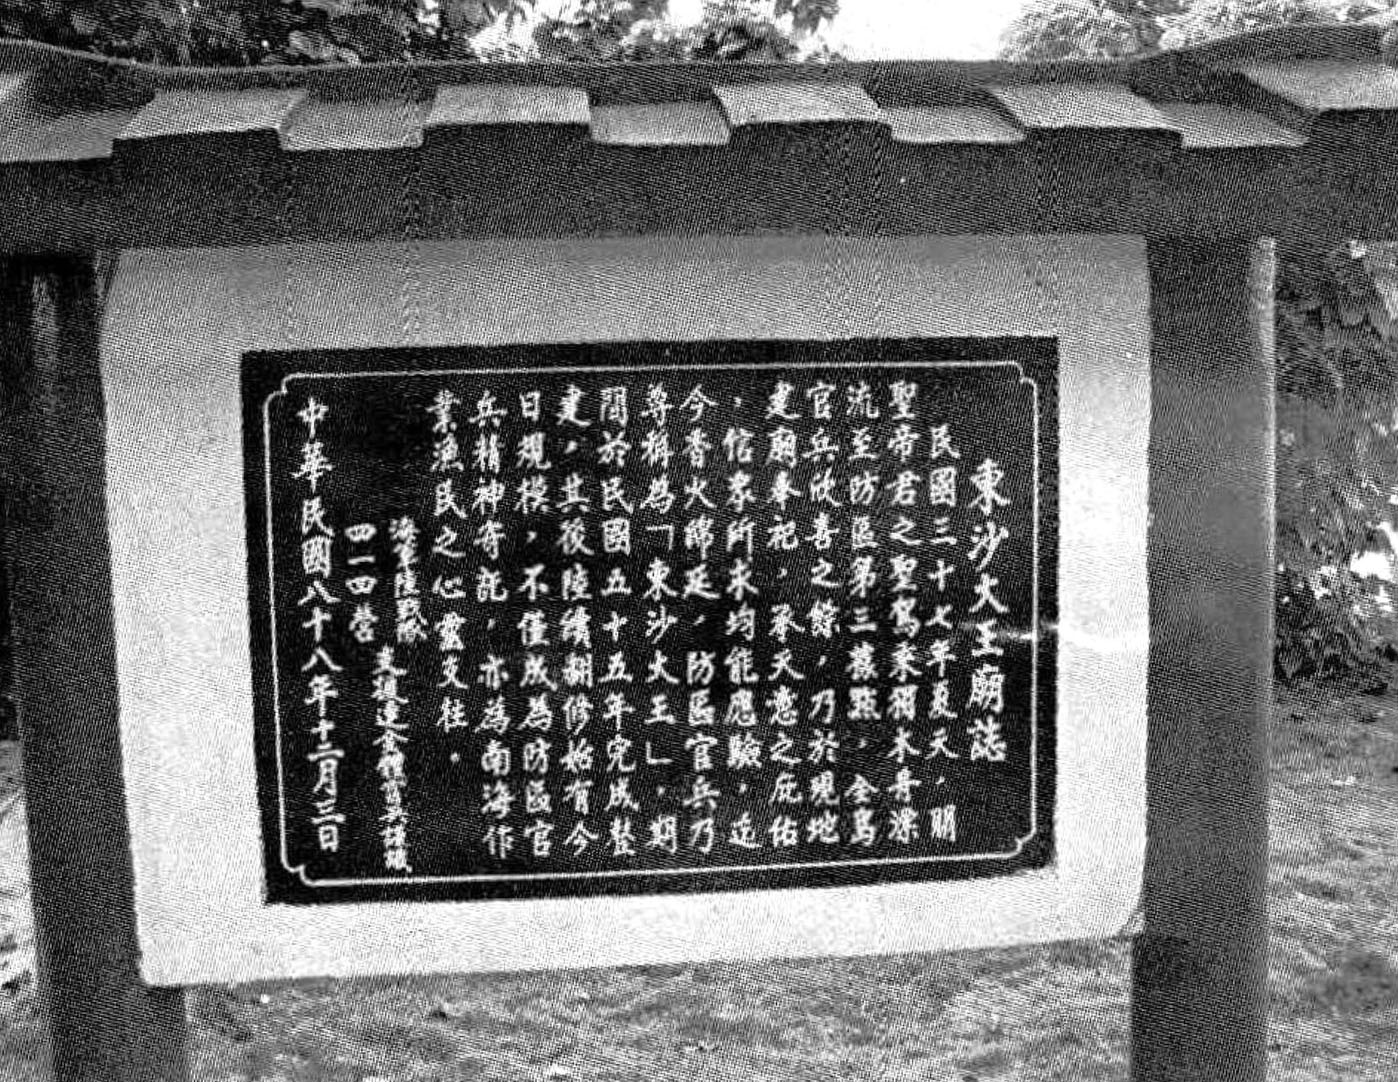 東沙大王廟誌
民國三十七年夏天，關
聖帝君之聖駕乘獨木舟漂
流至防區第三舊點，全島
官兵欣喜之餘，乃於現地
建廟奉祀，承天意之庇佑
，信眾所求均能應驗，迄
今香火綿延，防區官兵乃
尊稱為「東沙大王」，期
間於民國五十五年完成整
建，其後陸續翻修始有今
日規模，不僅成為防區官
兵精神寄託，亦為南海作
業漁民之心靈支柱。
海軍陸戰隊
四一四營
支援連全體官兵謹識
中華民國八十八年十二月三日